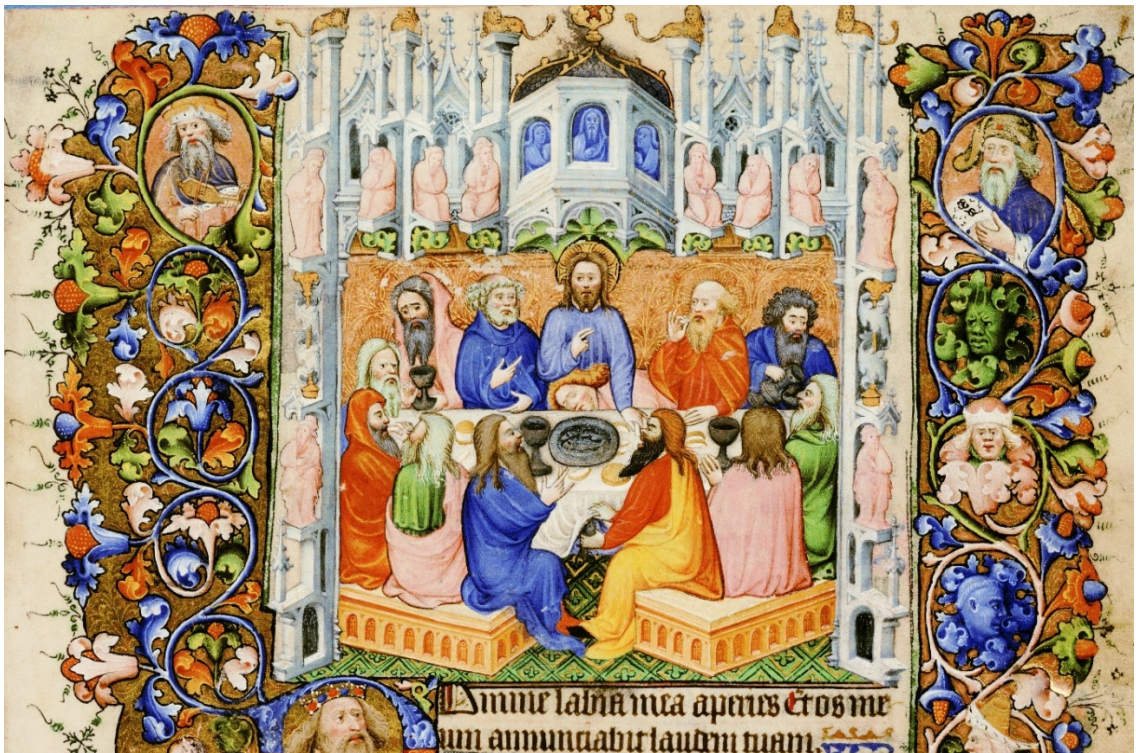 Domine labia mea aperies Et os me
um annunciabit laudem tuam.